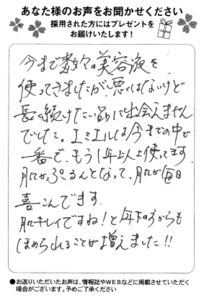 あなた様のお声をお聞かせください
採用された方にはプレゼントを
お届けいたします!
今まで数々の美容液を
使ってきましたが悪くはないけど
長く続けたい品に出会えません
でした。エミエルは今までの中で
一番で、もう1年以上使ってます。
肌がぷるんとなって、肌が毎日
喜こんでます。
肌キレイですね!と年下の子からも
ほめられることが増えました!!
●お送りいただいたお声は、情報誌やWEBなどに掲載させていただく
場合がございます。予めご了承ください